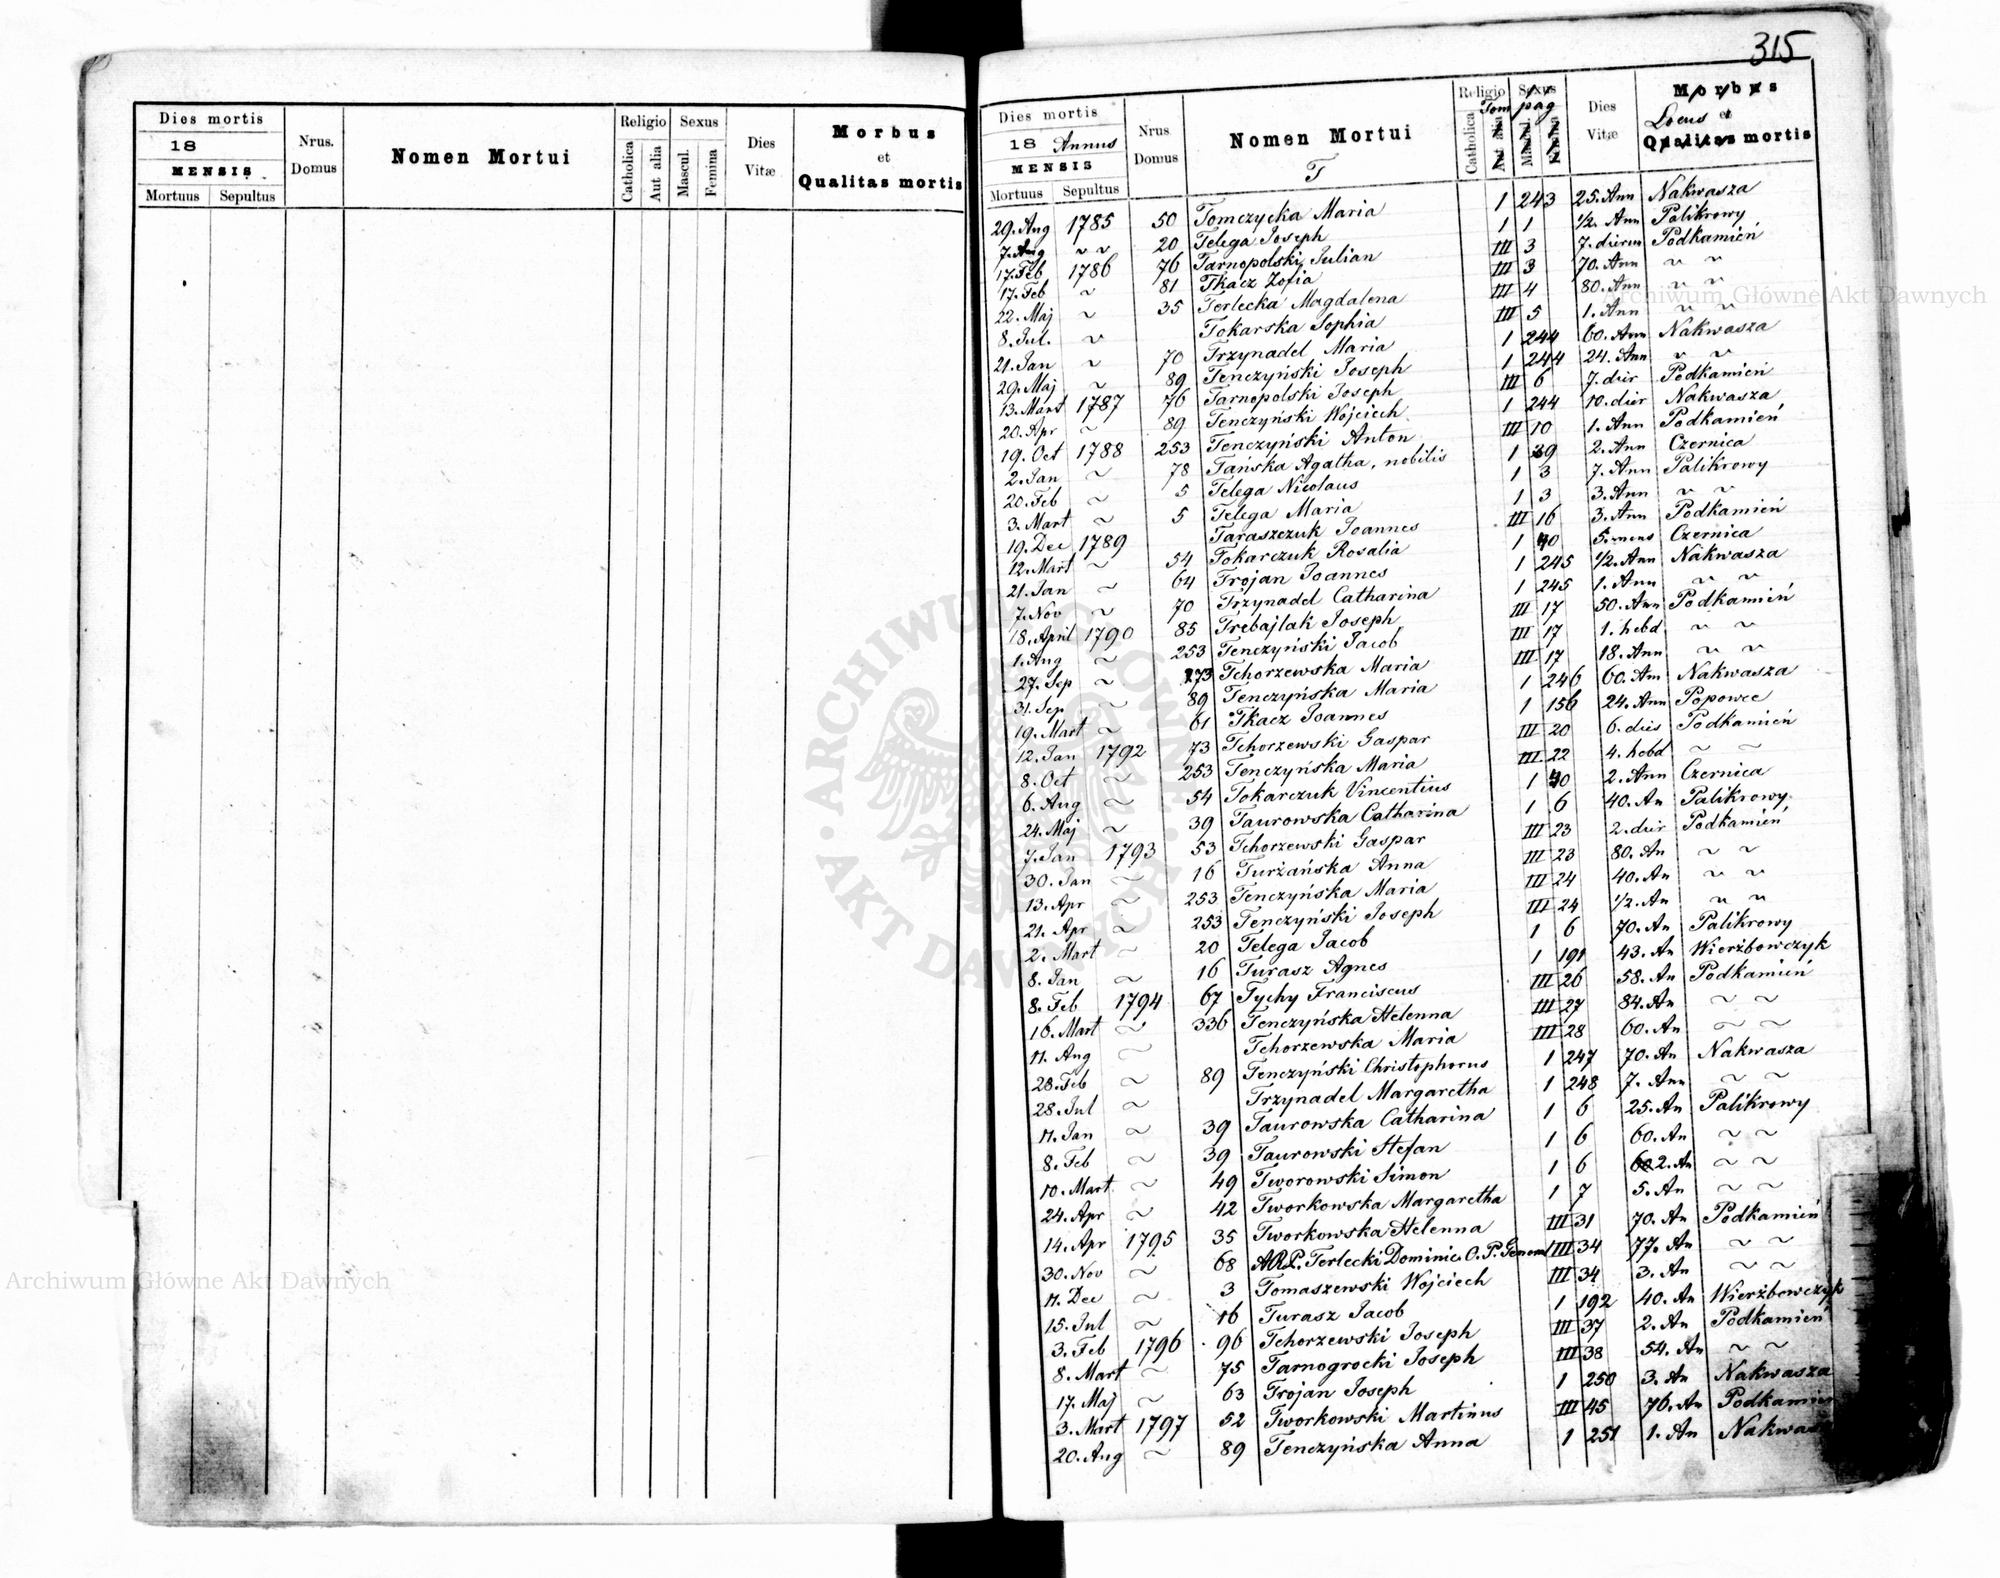 315
Dies mortis
18
MENSIS
Mortuus Sepultus
Nrus. Domus
Nomen Mortui
Religio
Catholica Aut alia
Sexus
Mascul. Femina
Dies Vitæ
Morbus
et
Qualitas mortis
Dies mortis
18 Annus
MENSIS
Mortuus Sepultus
Nrus Domus
Nomen Mortui
T
Religio Sexus
Tom pag
Catholica Aut alia Mascul. Femina
Dies Vitæ
Morbus
Locus et
Qualitas mortis
29. Aug 1785 50 Tomczycka Maria 1 243 25. Ann Nakwasza
7. Aug ~ ~ 20 Telega Joseph 1 1 1/2. Ann Palikrowy
17. Feb 1786 76 Tarnopolski Julian III 3 7. dierum Podkamień
17. Feb ~ 81 Tkacz Zofia III 3 70. Ann ~ ~
22. Maj ~ 35 Terlecka Magdalena III 4 80. Ann ~ ~
8. Jul. ~ Tokarska Sophia III 5 1. Ann ~ ~
21. Jan ~ 70 Trzynadel Maria 1 244 60. Ann Nakwasza
29. Maj ~ 89 Tenczyński Joseph 1 244 24. Ann ~ ~
13. Mart 1787 76 Tarnopolski Joseph III 6 7. dier Podkamień
20. Apr ~ 89 Tenczyński Wojciech 1 244 10. dier Nakwasza
19. Oct 1788 253 Tenczyński Anton III 10 1. Ann Podkamień
2. Jan ~ 78 Tańska Agatha, nobilis 1 39 2. Ann Czernica
20. Feb ~ 5 Telega Nicolaus 1 3 7. Ann Palikrowy
3. Mart ~ 5 Telega Maria 1 3 3. Ann ~ ~
19. Dec 1789 Taraszczuk Joannes III 16 3. Ann Podkamień
12. Mart ~ 54 Tokarczuk Rosalia 1 40 5. mens Czernica
21. Jan ~ 64 Trojan Joannes 1 245 1/2. Ann Nakwasza
7. Nov ~ 70 Trzynadel Catharina 1 245 1. Ann ~ ~
18. April 1790 85 Trebajlak Joseph III 17 50. Ann Podkamień
1. Aug ~ 253 Tenczyński Jacob III 17 1. hebd ~ ~
27. Sep ~ 273 Tchorzewska Maria III 17 18. Ann ~ ~
31. Sep ~ 89 Tenczyńska Maria 1 246 60. Ann Nakwasza
19. Mart ~ 61 Tkacz Joannes 1 156 24. Ann Popowce
12. Jan 1792 73 Tchorzewski Gaspar III 20 6. dies Podkamień
8. Oct ~ 253 Tenczyńska Maria III 22 4. hebd ~ ~
6. Aug ~ 54 Tokarczuk Vincentius 1 40 2. Ann Czernica
24. Maj ~ 39 Taurowska Catharina 1 6 40. An Palikrowy
7. Jan 1793 53 Tchorzewski Gaspar III 23 2. dier Podkamień
30. Jan ~ 16 Turzańska Anna III 23 80. An ~ ~
13. Apr ~ 253 Tenczyńska Maria III 24 40. An ~ ~
21. Apr ~ 253 Tenczyński Joseph III 24 1/2. An ~ ~
2. Mart ~ 20 Telega Jacob 1 6 70. An Palikrowy
8. Jan ~ 16 Turasz Agnes 1 191 43. An Wierzbowczyk
8. Feb 1794 67 Tychy Franciscus III 26 58. An Podkamień
16. Mart ~ 336 Tenczyńska Helenna III 27 84. An ~ ~
11. Aug ~ Tchorzewska Maria III 28 60. An ~ ~
28. Feb ~ 89 Tenczyński Christophorus 1 247 70. An Nakwasza
28. Jul ~ Trzynadel Margaretha 1 248 7. Ann ~ ~
11. Jan ~ 39 Taurowska Catharina 1 6 25. An Palikrowy
8. Feb ~ 39 Taurowski Stefan 1 6 60. An ~ ~
10. Mart ~ 49 Tworowski Simon 1 6 2. An ~ ~
24. Apr ~ 42 Tworkowska Margaretha 1 7 5. An ~ ~
14. Apr 1795 35 Tworkowska Helenna III 31 70. An Podkamień
30. Nov ~ 68 A.R.P. Terlecki Dominic O.P. III 34 77. An ~ ~
11. Dec ~ 3 Tomaszewski Wojciech III 34 3. An ~ ~
15. Jul ~ 16 Turasz Jacob 1 192 40. An Wierzbowczyk
3. Feb 1796 96 Tchorzewski Joseph III 37 2. An Podkamień
8. Mart ~ 75 Tarnogrocki Joseph III 38 54. An ~ ~
17. Maj ~ 63 Trojan Joseph 1 250 3. An Nakwasza
3. Mart 1797 52 Tworkowski Martinus III 45 76. An Podkamień
20. Aug ~ 89 Tenczyńska Anna 1 251 1. An Nakwas
Archiwum Główne Akt Dawnych
Archiwum Główne Akt Dawnych
ARCHIWUM GŁÓWNE AKT DAWNYCH